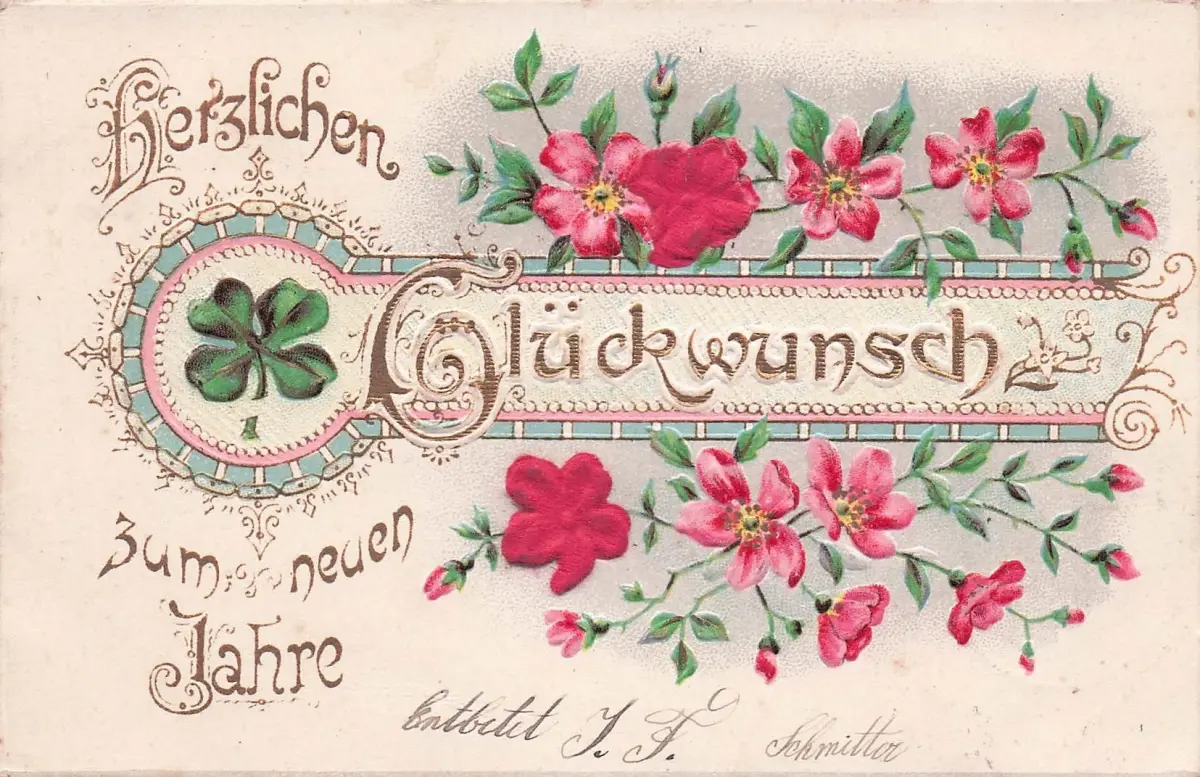 Herzlichen
Glückwunsch
1
zum neuen
Jahre
Entbietet J. F. Schmitter